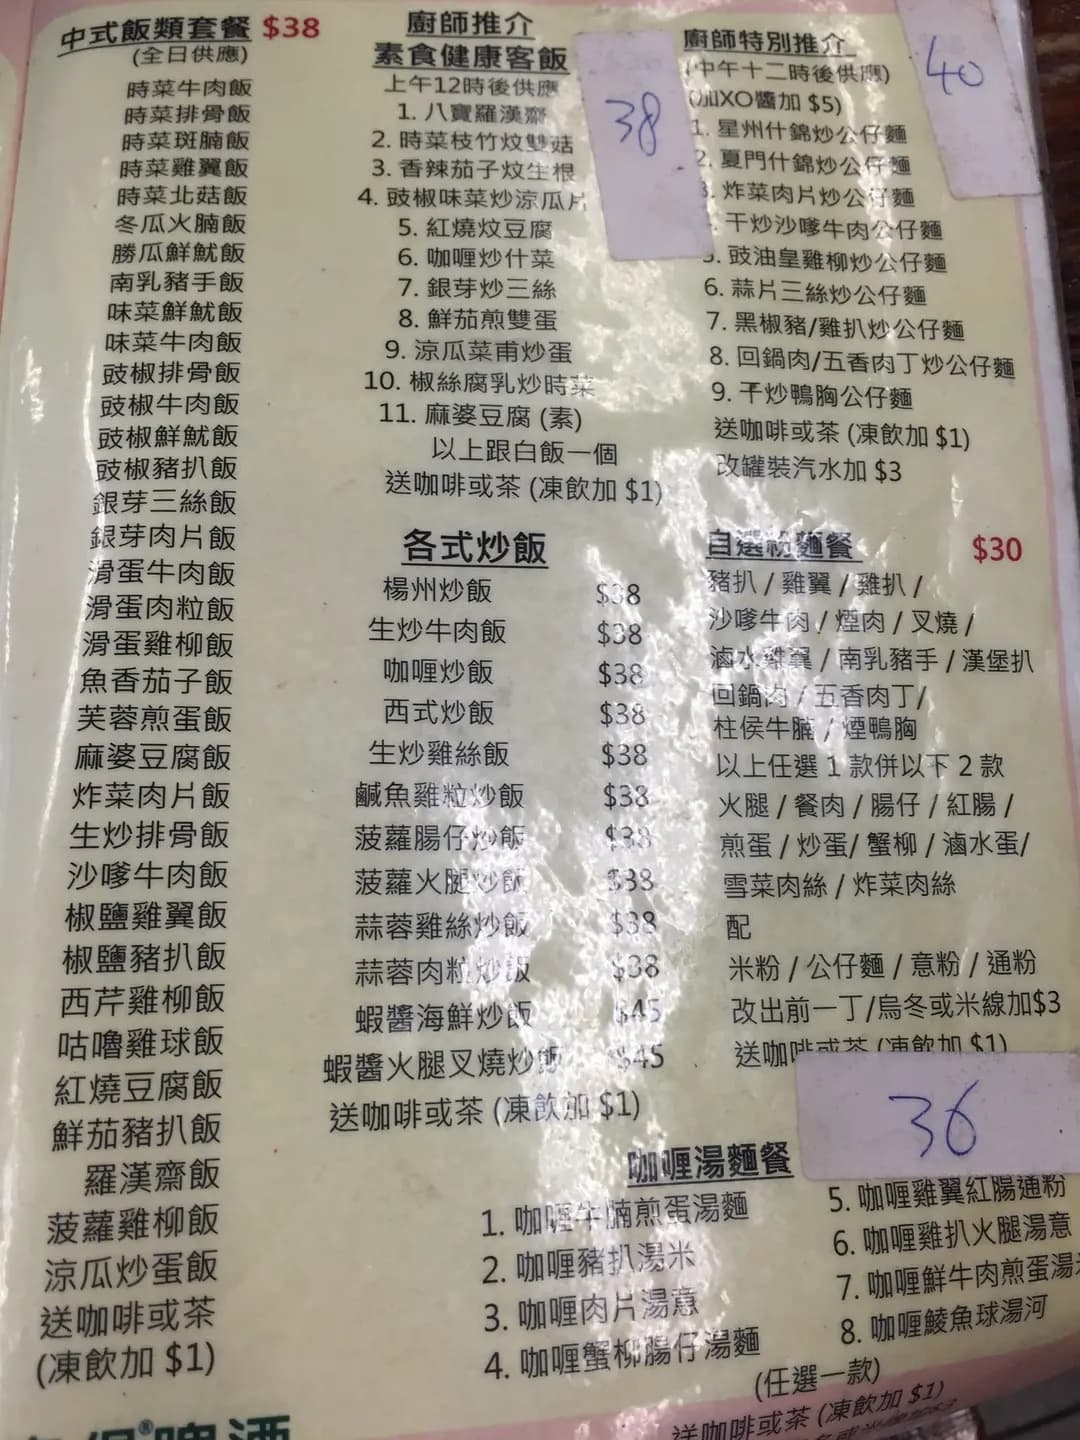 中式飯類套餐 $38
(全日供應)
時菜牛肉飯
時菜排骨飯
時菜斑腩飯
時菜雞翼飯
時菜北菇飯
冬瓜火腩飯
勝瓜鮮魷飯
南乳豬手飯
味菜鮮魷飯
味菜牛肉飯
豉椒排骨飯
豉椒牛肉飯
豉椒鮮魷飯
豉椒豬扒飯
銀芽三絲飯
銀芽肉片飯
滑蛋牛肉飯
滑蛋肉粒飯
滑蛋雞柳飯
魚香茄子飯
芙蓉煎蛋飯
麻婆豆腐飯
炸菜肉片飯
生炒排骨飯
沙嗲牛肉飯
椒鹽雞翼飯
椒鹽豬扒飯
西芹雞柳飯
咕嚕雞球飯
紅燒豆腐飯
鮮茄豬扒飯
羅漢齋飯
菠蘿雞柳飯
涼瓜炒蛋飯
送咖啡或茶
(凍飲加 $1)
廚師推介
素食健康客飯
38
上午12時後供應
1. 八寶羅漢齋
2. 時菜枝竹炆雙菇
3. 香辣茄子炆生根
4. 豉椒味菜炒涼瓜片
5. 紅燒炆豆腐
6. 咖喱炒什菜
7. 銀芽炒三絲
8. 鮮茄煎雙蛋
9. 涼瓜菜甫炒蛋
10. 椒絲腐乳炒時菜
11. 麻婆豆腐 (素)
以上跟白飯一個
送咖啡或茶 (凍飲加 $1)
各式炒飯
楊州炒飯 $38
生炒牛肉飯 $38
咖喱炒飯 $38
西式炒飯 $38
生炒雞絲飯 $38
鹹魚雞粒炒飯 $38
菠蘿腸仔炒飯 $38
菠蘿火腿炒飯 $38
蒜蓉雞絲炒飯 $38
蒜蓉肉粒炒飯 $38
蝦醬海鮮炒飯 $45
蝦醬火腿叉燒炒飯 $45
送咖啡或茶 (凍飲加 $1)
廚師特別推介
40
(中午十二時後供應)
(加XO醬加 $5)
1. 星州什錦炒公仔麵
2. 夏門什錦炒公仔麵
3. 炸菜肉片炒公仔麵
干炒沙嗲牛肉公仔麵
5. 豉油皇雞柳炒公仔麵
6. 蒜片三絲炒公仔麵
7. 黑椒豬/雞扒炒公仔麵
8. 回鍋肉/五香肉丁炒公仔麵
9. 干炒鴨胸公仔麵
送咖啡或茶 (凍飲加 $1)
改罐裝汽水加 $3
自選粉麵餐 $30
豬扒 / 雞翼 / 雞扒 /
沙嗲牛肉 / 煙肉 / 叉燒 /
滷水雞翼 / 南乳豬手 / 漢堡扒
回鍋肉 / 五香肉丁 /
柱侯牛腩 / 煙鴨胸
以上任選 1 款併以下 2 款
火腿 / 餐肉 / 腸仔 / 紅腸 /
煎蛋 / 炒蛋/ 蟹柳 / 滷水蛋/
雪菜肉絲 / 炸菜肉絲
配
米粉 / 公仔麵 / 意粉 / 通粉
改出前一丁/烏冬或米線加$3
送咖啡或茶 (凍飲加 $1)
36
咖喱湯麵餐
1. 咖喱牛腩煎蛋湯麵
2. 咖喱豬扒湯米
3. 咖喱肉片湯意
4. 咖喱蟹柳腸仔湯麵
5. 咖喱雞翼紅腸通粉
6. 咖喱雞扒火腿湯意
7. 咖喱鮮牛肉煎蛋湯
8. 咖喱鯪魚球湯河
(任選一款)
送咖啡或茶 (凍飲加 $1)
啤酒